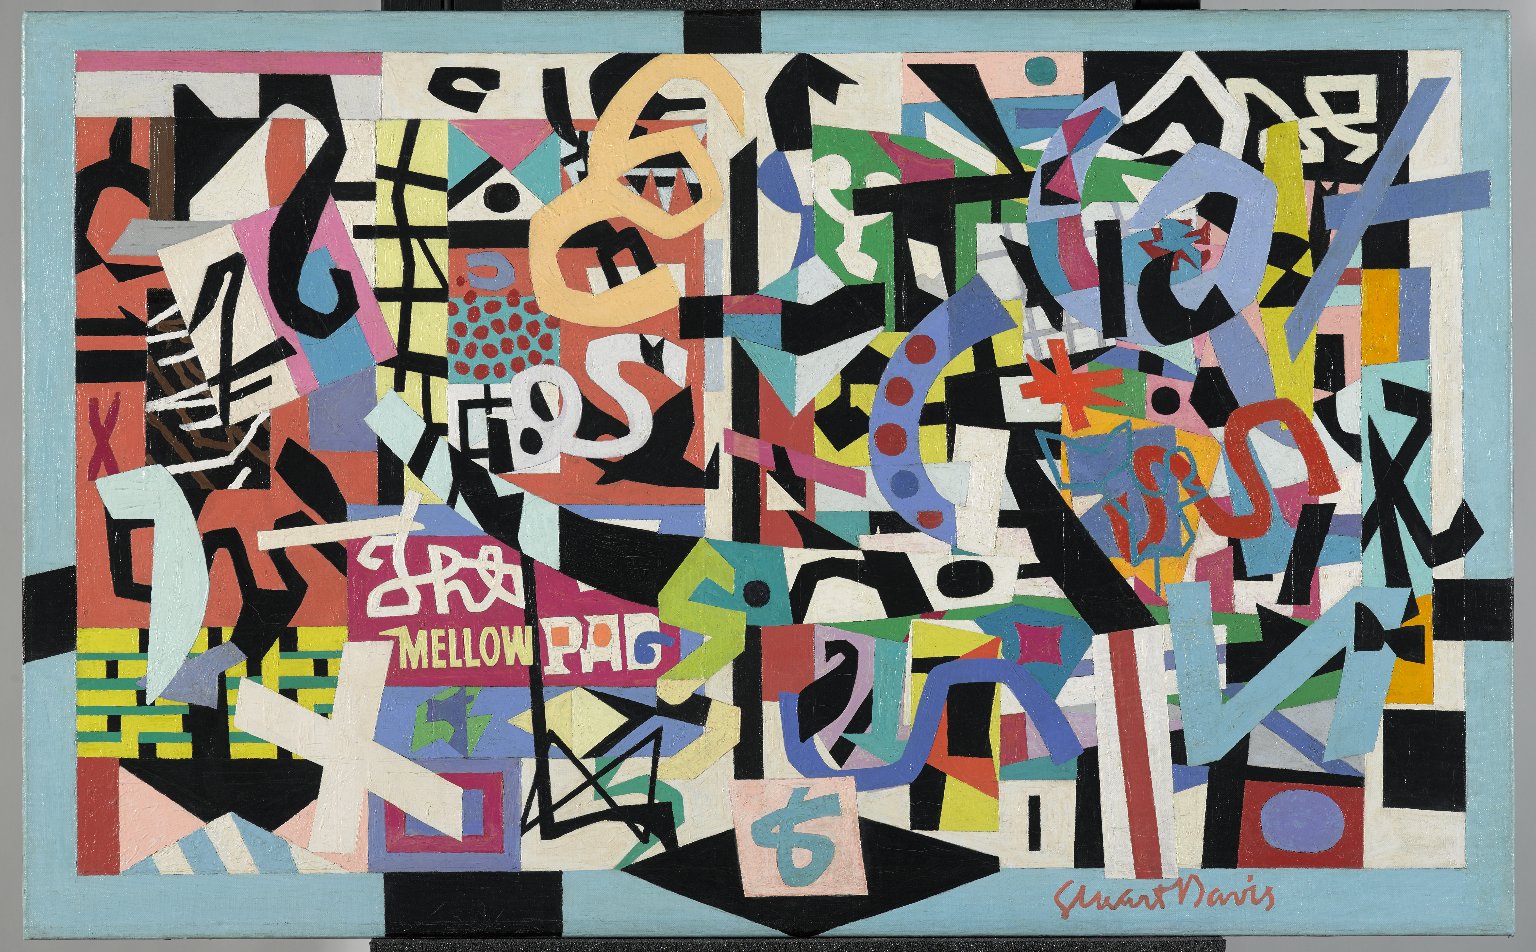 the
MELLOW PAD
8
Stuart Davis